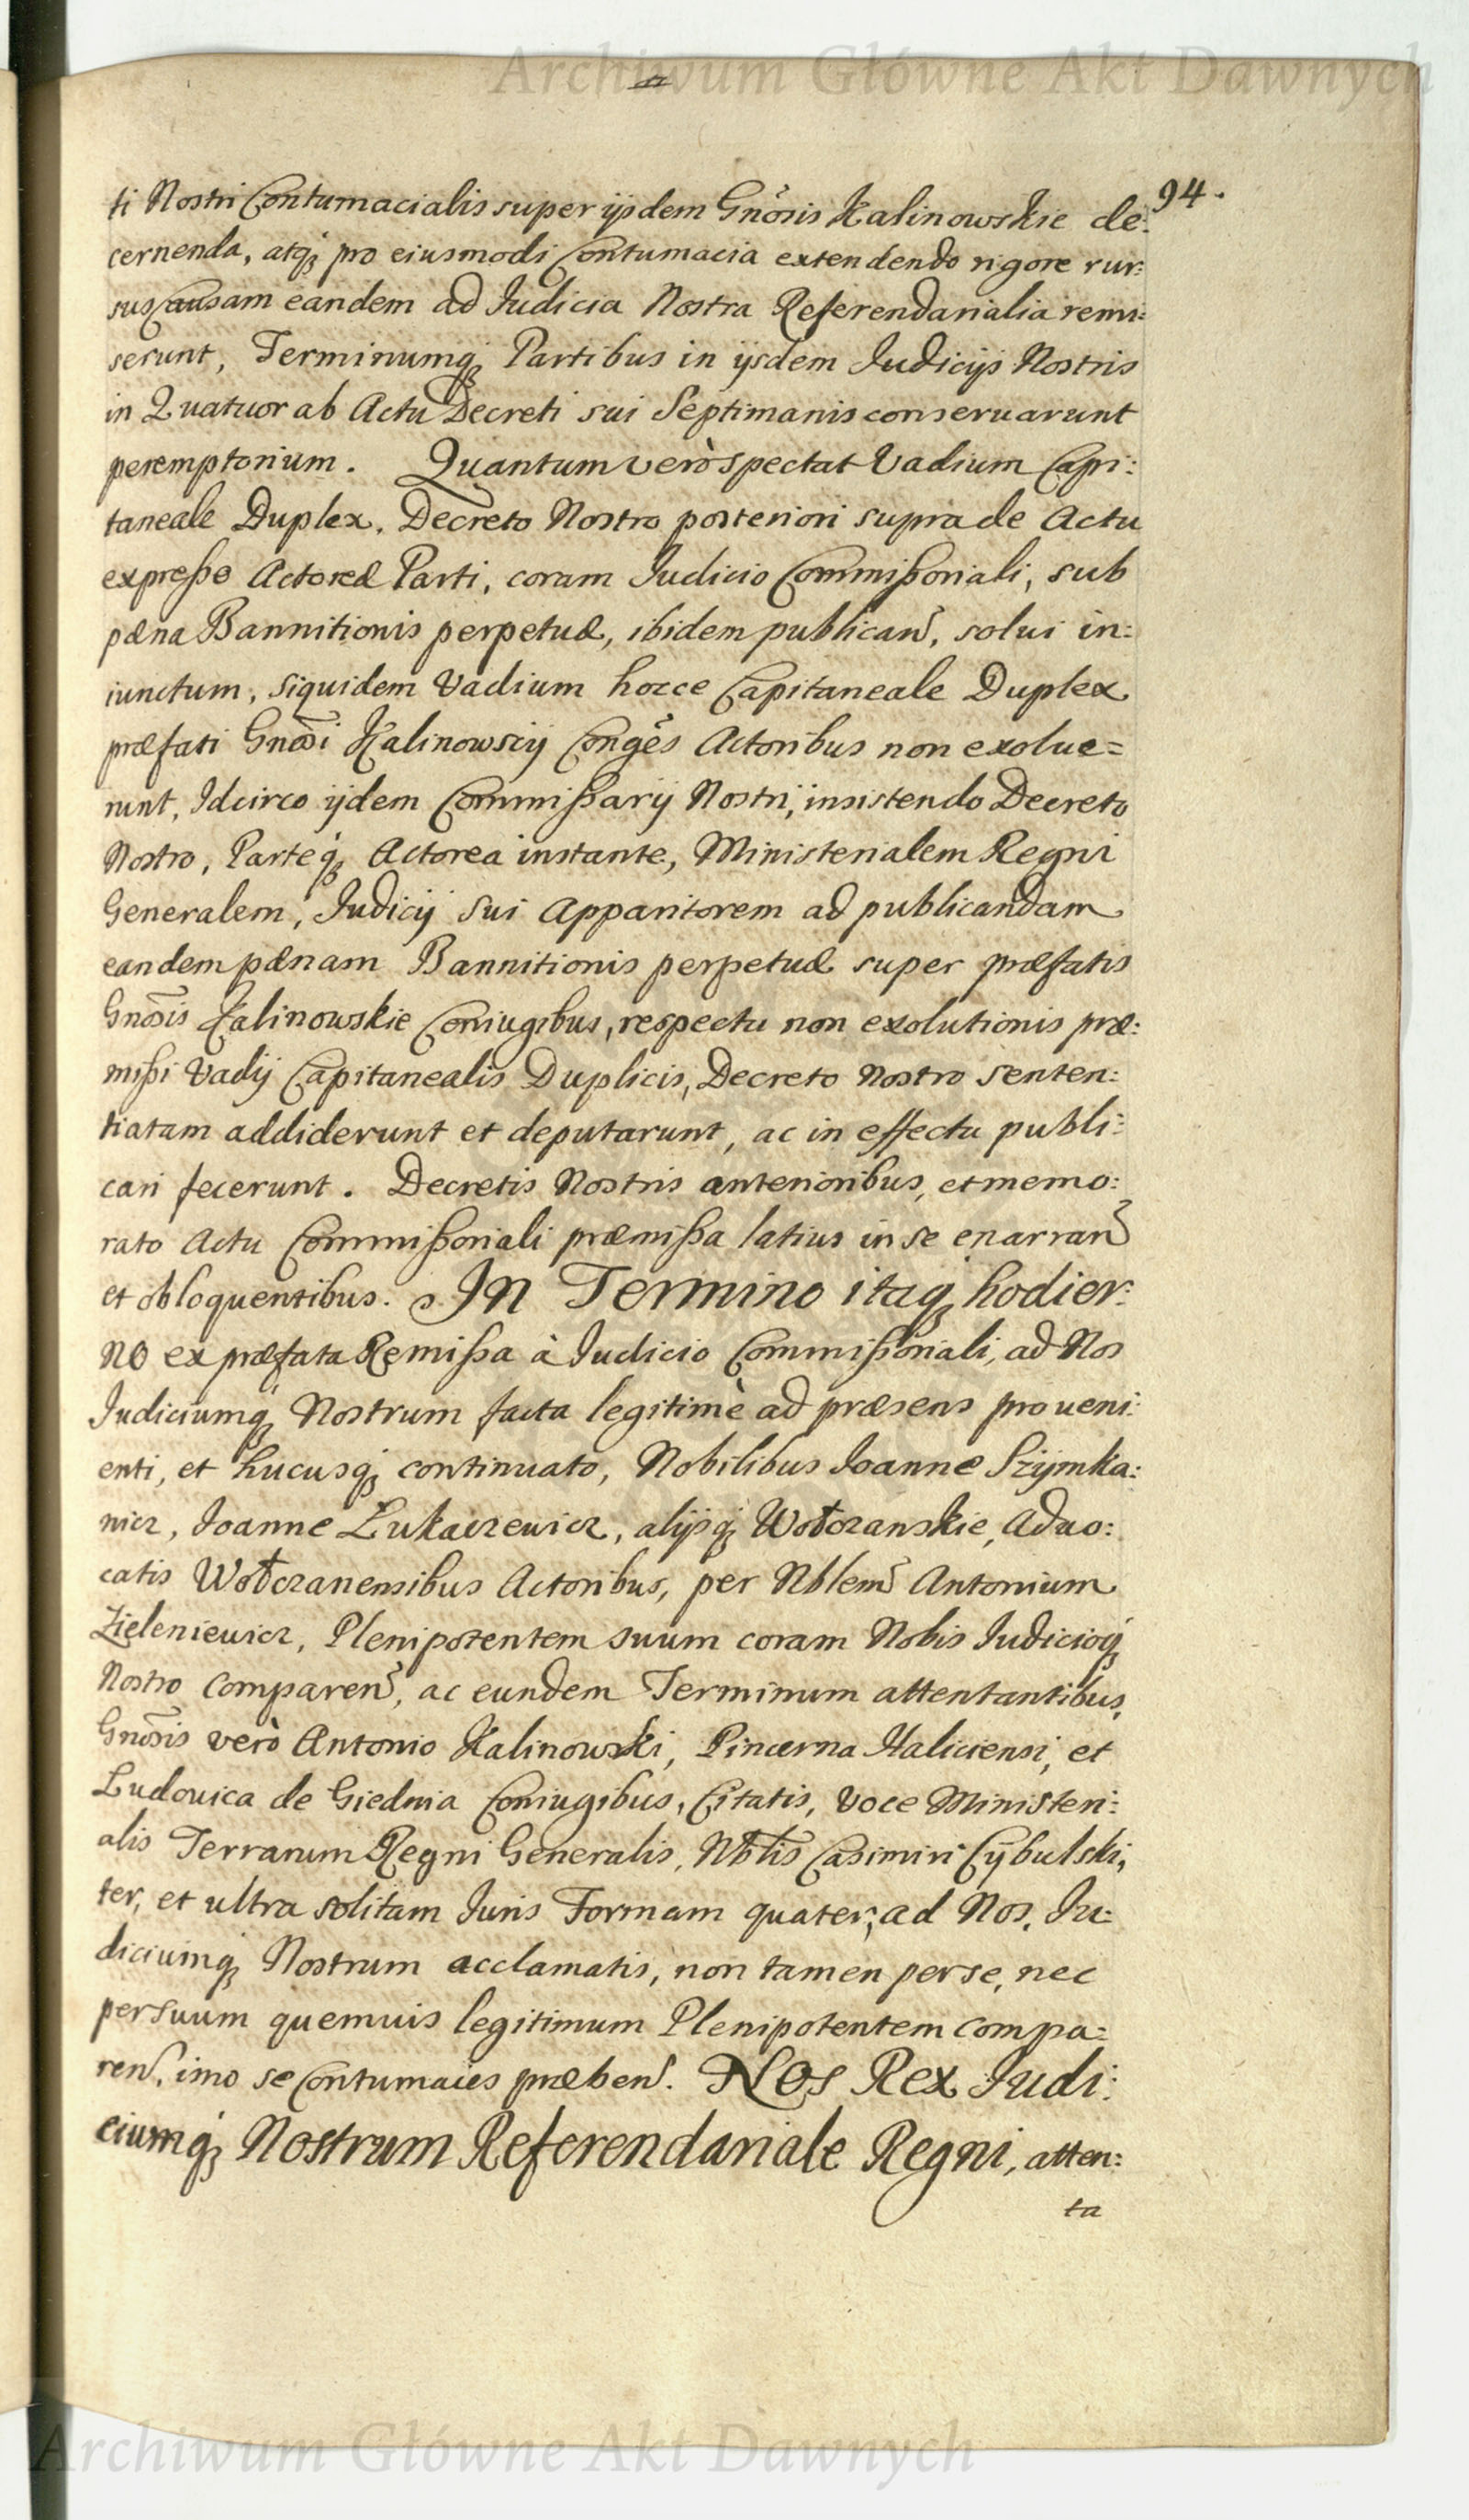 Archiwum Główne Akt Dawnych
94.
ti Nostri Contumacialis super ijsdem Gnõsis Kalinowskie de:
cernenda, atq́; pro eiusmodi Contumacia extendendo rigore rur:
sus Causam eandem ad Judicia Nostra Referendarialia remi:
serunt, Terminumq́; Partibus in ijsdem Judicijs Nostris
in Quatuor ab Actu Decreti sui Septimanis conseruarunt
peremptorium. Quantum verò spectat Vadium Capi:
taneale Duplex, Decreto Nostro posteriori supra de Actu
expreßo Actoreæ Parti, coram Judicio Commißoriali, sub
pæna Bannitionis perpetuæ, ibidem publicañ, solui in:
iunctum, siquidem Vadium hocce Capitaneale Duplex
præfati Gnõsi Kalinowscij Conges̃ Actoribus non exolue=
runt, Idcirco ijdem Commißarij Nostri, insistendo Decreto
Nostro, Parteq́; Actorea instante, Ministerialem Regni
Generalem, Judicij sui Apparitorem ad publicandam
eandem pænam Bannitionis perpetuæ super præfatis
Gnõsis Kalinowskie Coniugibus, respectu non exolutionis præ:
mißi Vadij Capitanealis Duplicis, Decreto Nostro senten:
tiatam addiderunt et deputarunt, ac in effectu publi:
cari fecerunt. Decretis Nostris anterioribus, et memo:
rato Actu Commißoriali præmißa latius in se enarrañ
et obloquentibus. In Termino itaq́; hodier:
no ex præfata Remißa à Judicio Commißoriali, ad Nos
Judiciumq́; Nostrum facta legitimè ad præsens proueni:
enti, et hucusq́; continuato, Nobilibus Joanne Szymka:
nicz, Joanne Łukaczewicz, alijsq́; Wołczanskie, Aduo:
catis Wołczanensibus Actoribus, per Nblem̃ Antonium
Zieleniewicz, Plenipotentem suum coram Nobis Judicioq́;
Nostro Compareñ, ac eundem Terminum attentantibus,
Gnõsis verò Antonio Kalinowski, Pincerna Haliciensi, et
Ludouica de Giednia Coniugibus, Citatis, voce Ministeri:
alis Terrarum Regni Generalis, Nbl̃is Casimiri Cybulski,
ter, et ultra solitam Juris Formam quater, ad Nos, Ju:
diciumq́; Nostrum acclamatis, non tamen per se, nec
per suum quemuis legitimum Plenipotentem compa:
reñ, imo se Contumaces præbeñ. Nos Rex Judi:
ciumq́; Nostrum Referendariale Regni, atten:
ta
Archiwum Główne Akt Dawnych